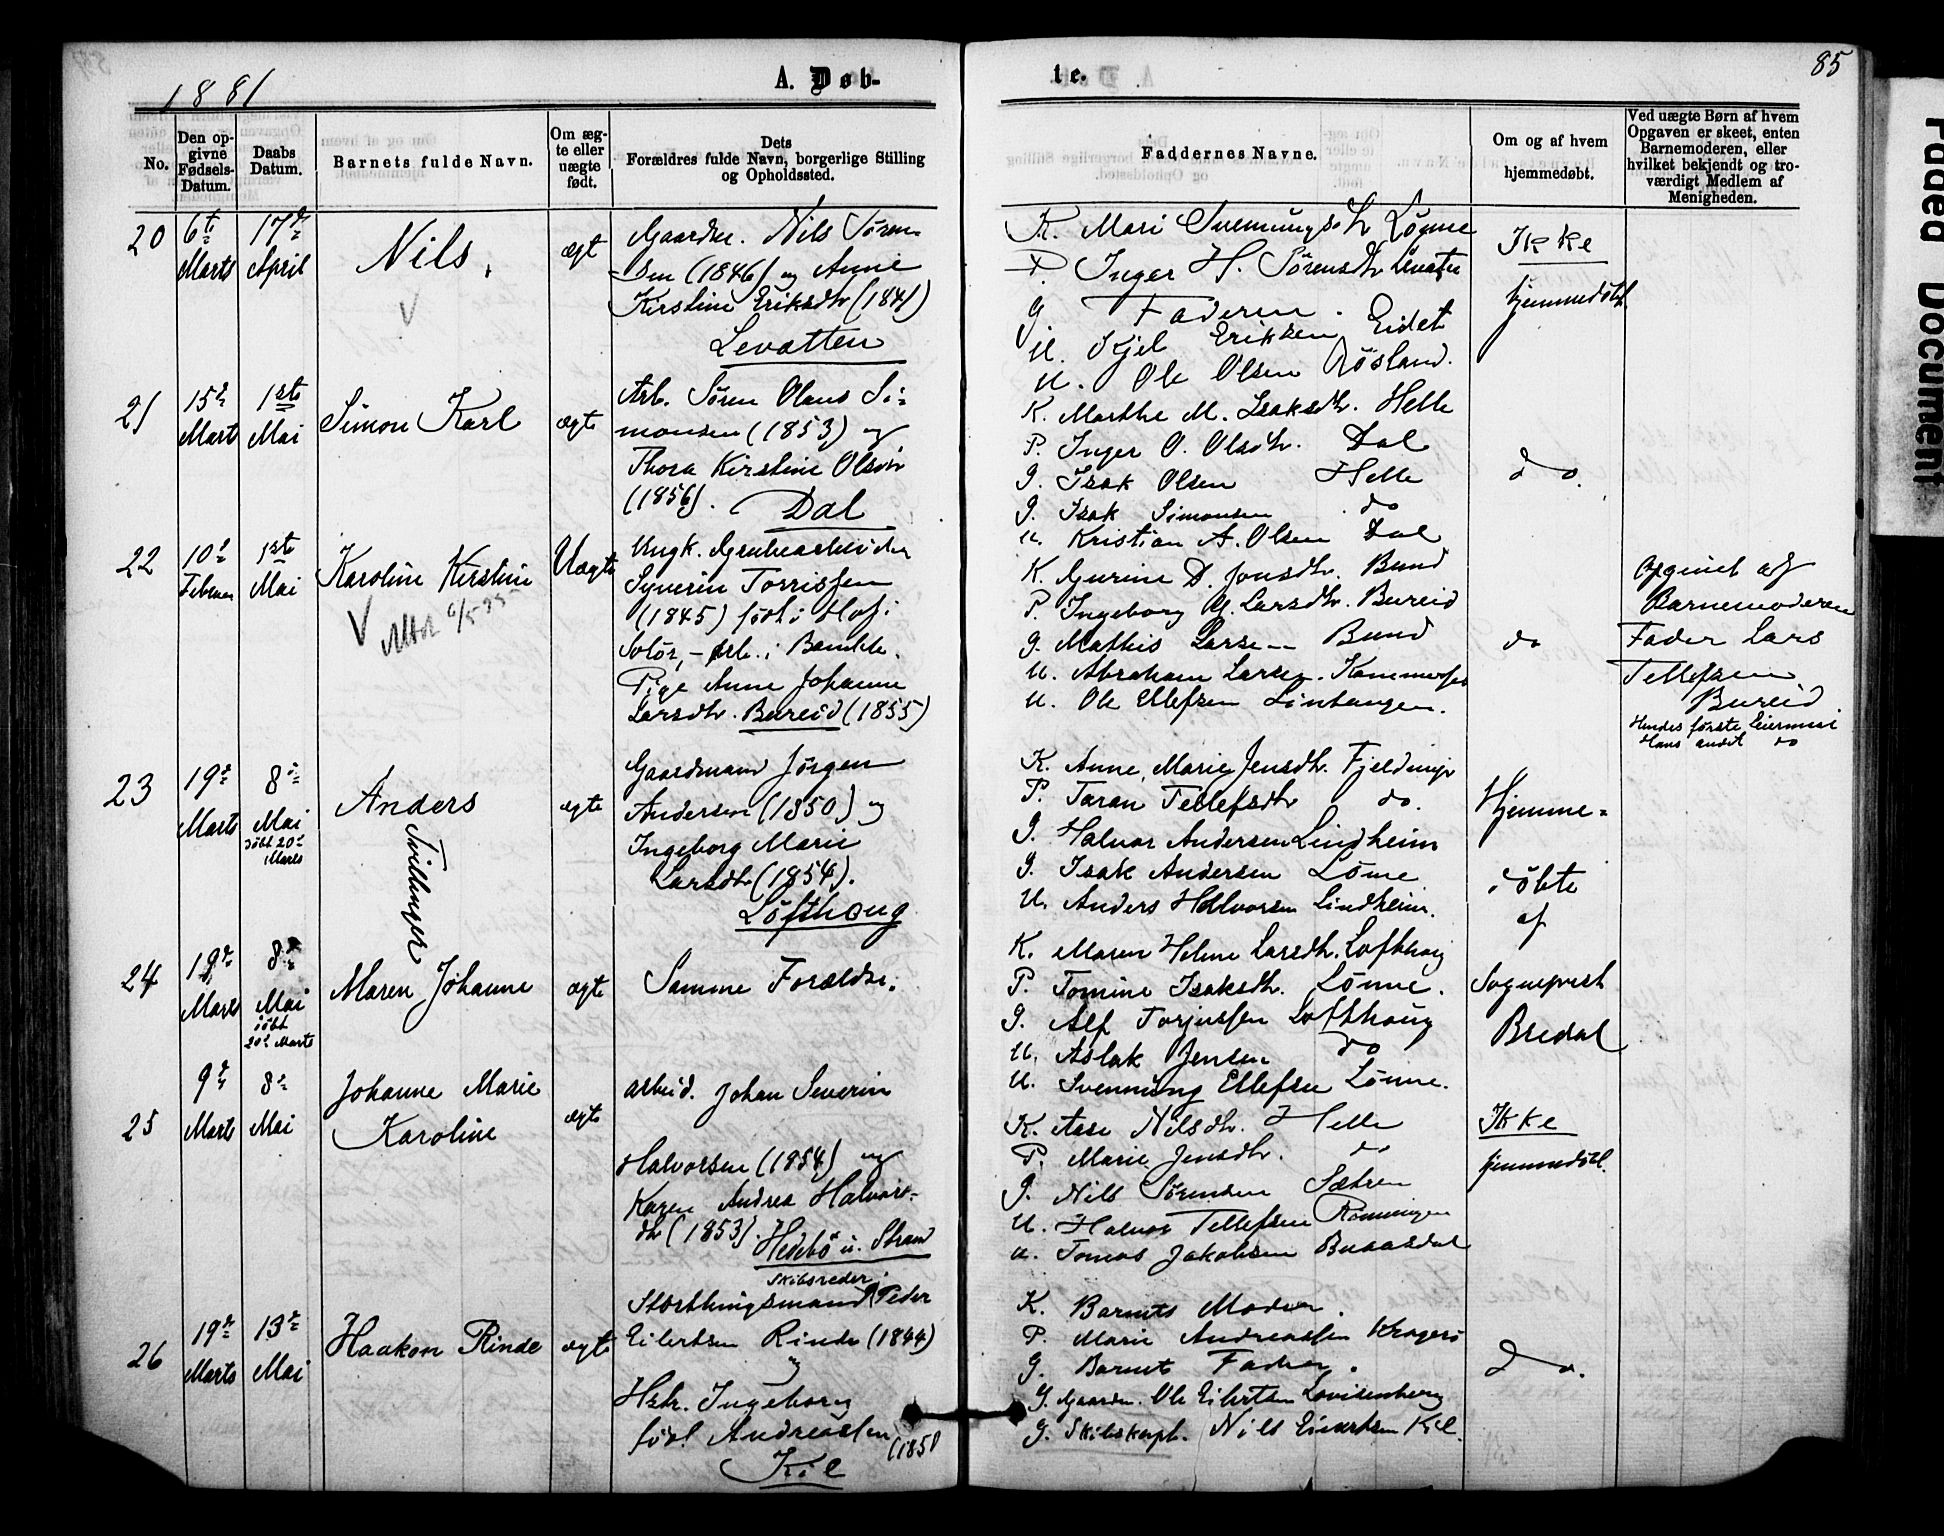 1881
A. Døb-
te.
85
No.
Den op-
givne
Fødsels-
Datum.
Daabs
Datum.
Barnets fulde Navn.
Om æg-
te eller
uægte
født.
Dets
Forældres fulde Navn, borgerlige Stilling
og Opholdssted.
Faddernes Navne.
Om og af hvem
hjemmedøbt.
Ved uægte Børn af hvem
Opgaven er skeet, enten
Barnemoderen, eller
hvilket bekjendt og tro-
værdigt Medlem af
Menigheden.
20
6te
Marts
17de
April
Nils
V
ægt
Gaardbr. Nils Søren-
sen (1846) og Anne
Kirstine Eriksdtr (1841)
Levatten
K. Mari Svenningsdtr Lønne
P. Inger H. Sørensdtr
G. Faderen.
U. Kjel Eriksen Eidet
U. Ole Olsen Røsland.
Ikke
hjemmedøbt
21
15de
Marts
1ste
Mai
Simon Karl
ægte
Arb. Søren Olaus Si-
monsen (1853) og
Thora Kirstine Olsdtr
(1856).
Dal
K. Marthe M. Isaksdtr. Helle
P. Inger O. Olsdtr. Dal
G. Isak Olsen Helle
G. Isak Simonsen do
U. Kristian A. Olsen Dal
do.
22
10de
Februar
1ste
Mai
Karoline Kirstine
V Attest 6/5-35
Uægte
Ungk. Grubearbeider
Syverin Torrissen
(1845) født i Hof i
Solør, - arb. i Bamble.
Pige Anne Johanne
Larsdtr. Bureid (1855)
K. Gurine D. Jonsdtr. Bund
P. Ingeborg G. Larsdtr. Bureid
G. Mathis Larsen Bund
U. Abraham Larsen. Kammerfos
U. Ole Ellefsen Lintangen.
do
Opgivet af
Barnemoderen
Fader Lars
Tellefsen
Bureid
Hendes første Leiermaal
Hans andet do
23
19de
Marts
8de
Mai
døbt 20de
Marts
Anders
Tvillinger
ægte
Gaardmand Jørgen
Andersen (1850) og
Ingeborg Marie
Larsdtr (1854).
Lofthaug
K. Anne Marie Jensdtr.
P. Taran Tellefsdtr do.
G. Halvor Andersen Lindheim
G. Isak Andersen Lønne
U. Anders Halvorsen Lindheim.
Hjemme-
døbte
af
24
19de
Marts
8de
Mai
døbt
20de Marts
Maren Johanne
ægte
Samme Forældre.
K. Maren Helene Larsdtr. Lofthaug
P. Tomine Isaksdtr. Lønne.
G. Alf Torjussen Lofthaug
U. Aslak Jensen do
U. Svenning Ellefsen Lønne.
Sogneprest
Bredal
25
9de
Marts
8de
Mai
Johanne Marie
Karoline
ægte
arbeid. Johan Severin
Halvorsen (1854) og
Karen Andrea Halvors-
dtr (1853).
Hedebø u. Strand
K. Aase Nilsdtr. Helle
P. Marie Jensdtr. do
G. Nils Sørensen Sætren
U. Halvor Tellefsen Rønningen
U. Tomas Jakobsen Buaasdal
Ikke
hjemmedøbt.
26
19de
Marts
13de
Mai
Haakon Rinde
ægte
Skibsreder
Storthingsmand Peder
Eilertsen Rinde (1844)
og
Hstr. Ingeborg
født Andreassen
(1850
Kil
K. Barnets Moder.
P. Marie Andreassen Kragerø
G. Barnets Fader.
G. Gaardbr. Ole Eilertsen Lovisenberg
G. Skibskapt. Nils Eilertsen Kil.
do.
Faded Document